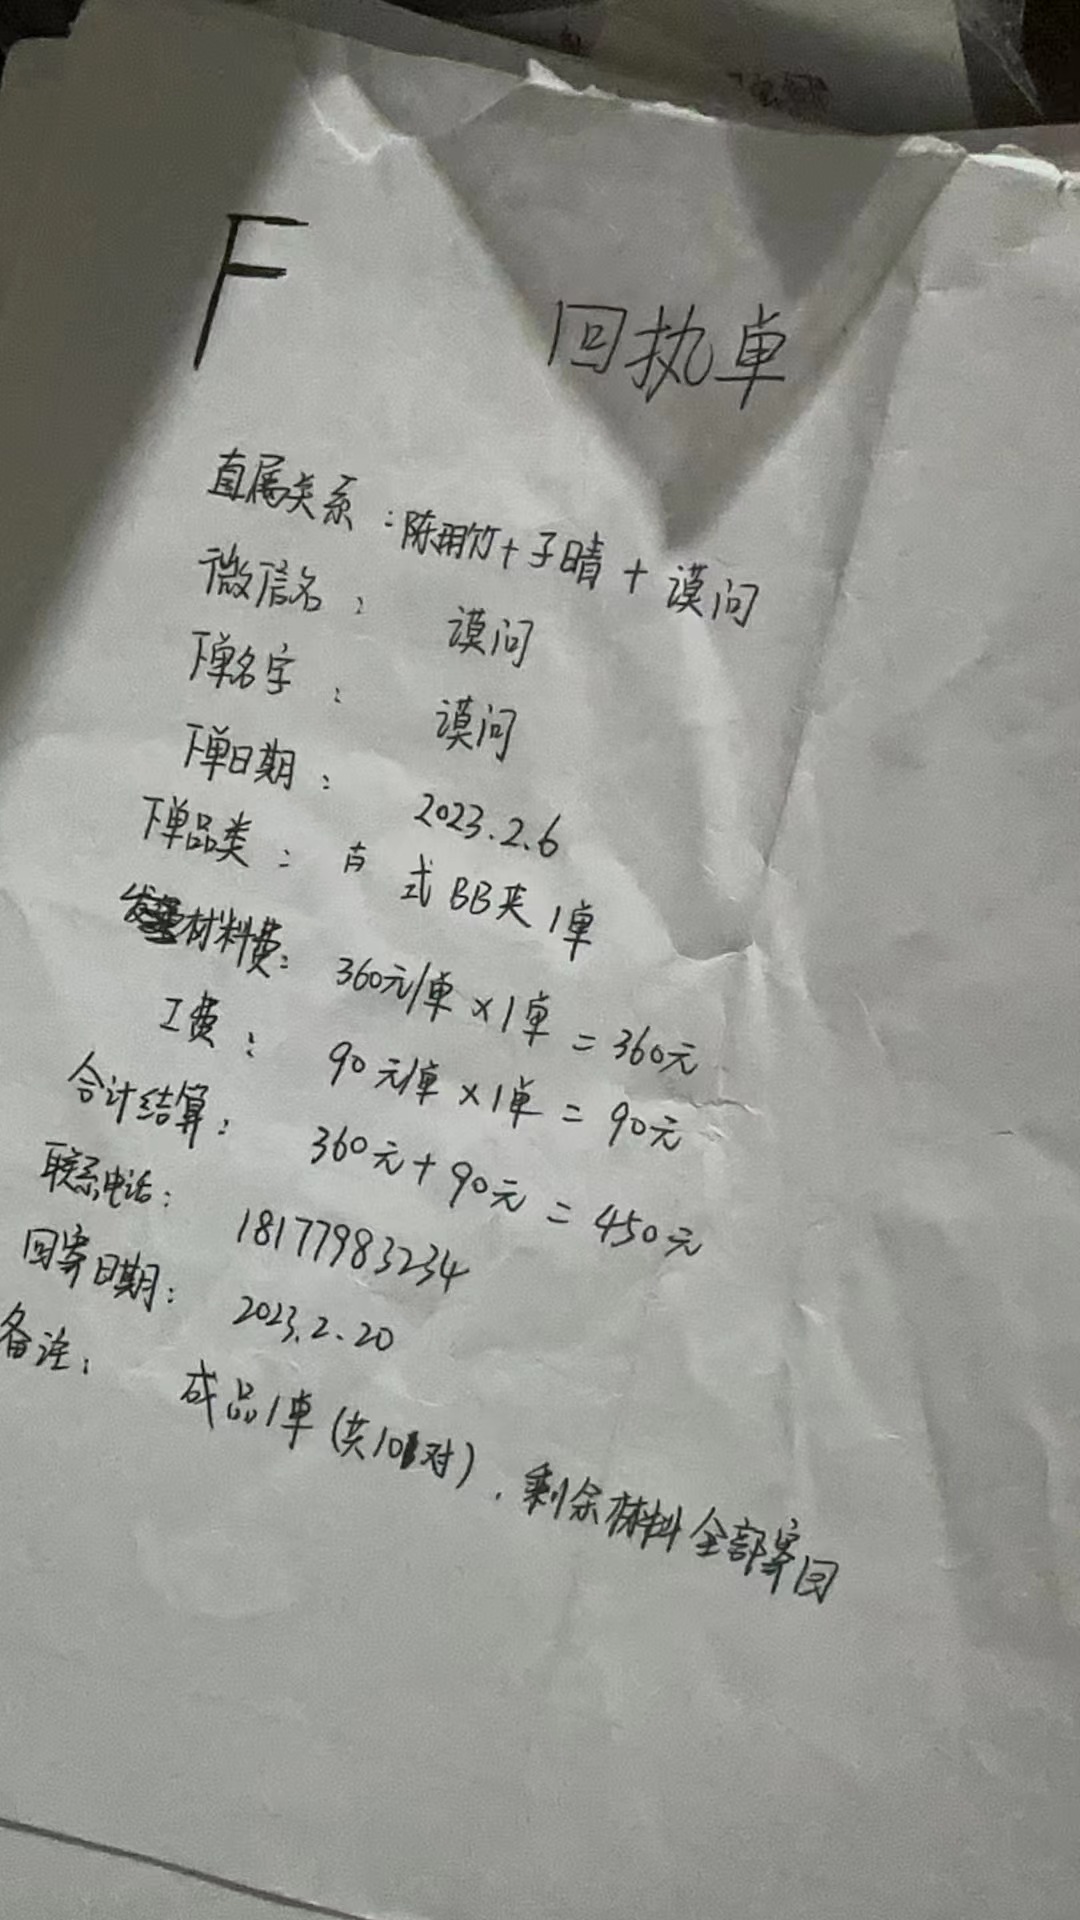 F
回执单
直属关系：陈翔竹+子晴+谟问
微信名：谟问
下单名字：谟问
下单日期：2023.2.6
下单品类：古式BB夹1单
材料费：360元/单×1单=360元
工费：90元/单×1单=90元
合计结算：360元+90元=450元
联系电话：18177983234
回寄日期：2023.2.20
备注：成品1单(共10对)，剩余材料全部寄回